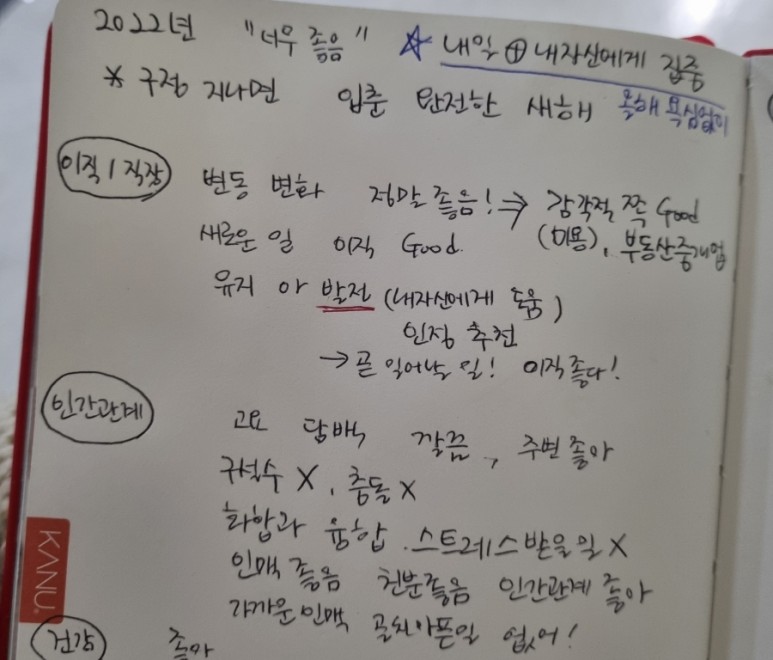 2022년 "너무 좋음" ☆ 내일 ⊕ 내자신에게 집중
* 구정 지나면 입춘 완전한 새해 올해 욕심없이
이직 / 직장 변동 변화 정말 좋음! ⇒ 감각적 쪽 Good
새로운 일 이직 Good. (미용), 부동산중개업
유지 아 발전 (내자신에게 도움)
인정 추천
→ 곧 일어날 일! 이직좋다!
인간관계 고요 담백 깔끔, 주변 좋아
구설수 X, 충돌 X
화합과 융합. 스트레스받을일 X
인맥 좋음 천분좋음 인간관계 좋아
가까운인맥 골치아픈일 없어!
KANU.
건강 좋아